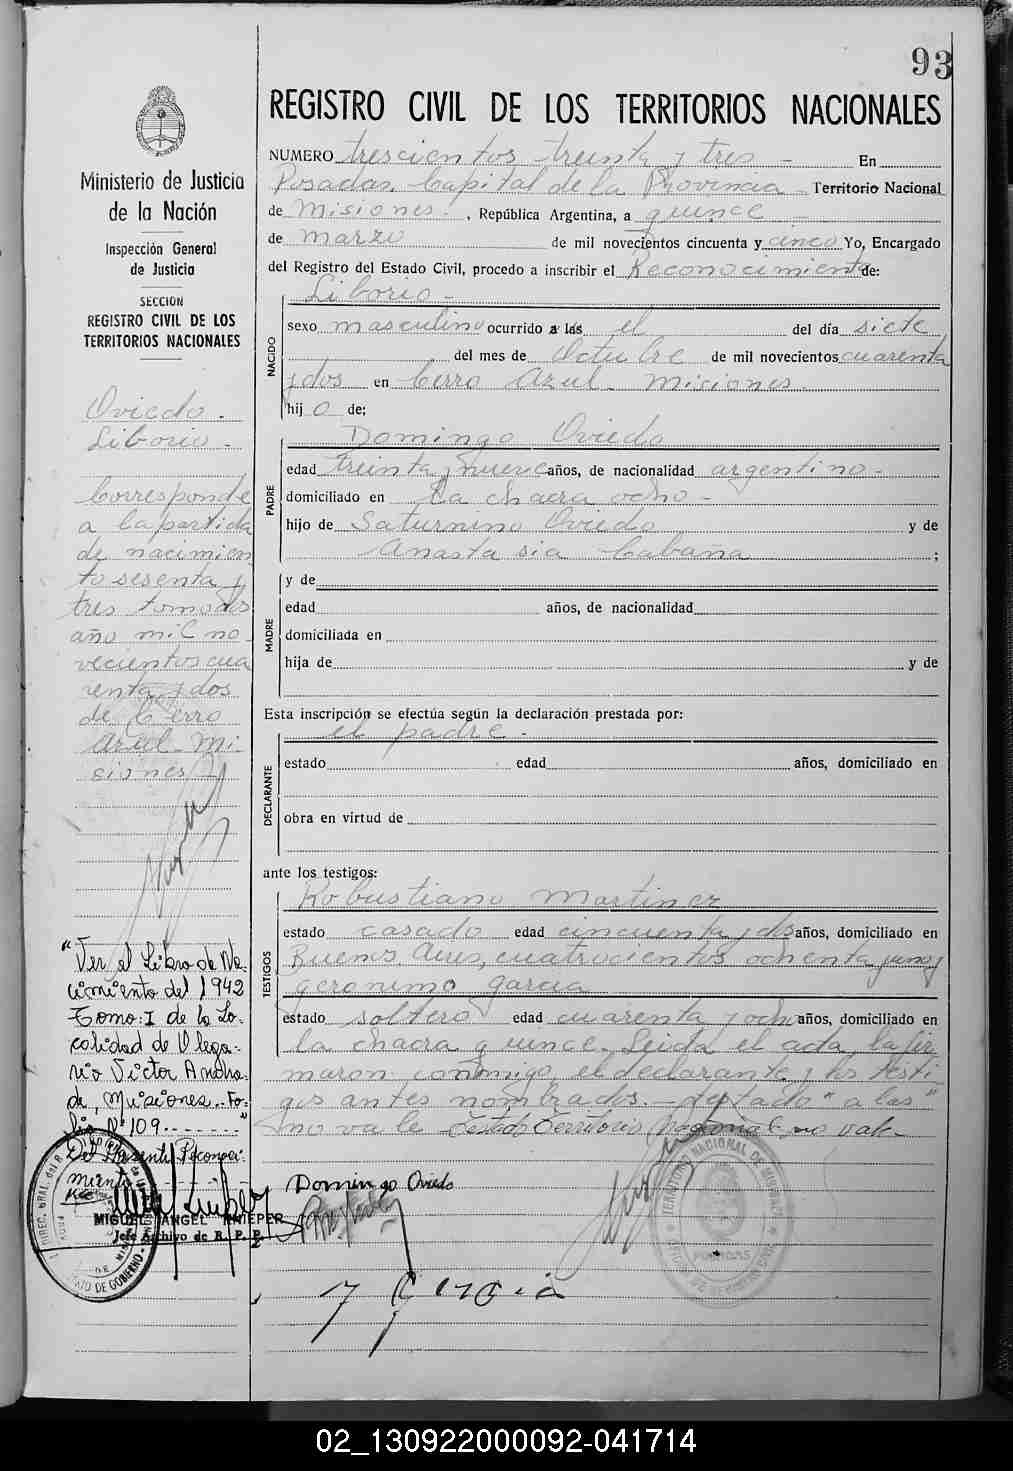 93
Ministerio de Justicia
de la Nación
Inspección General
de Justicia
SECCION
REGISTRO CIVIL DE LOS
TERRITORIOS NACIONALES
Oviedo.
Liborio -
Corresponde
a la partida
de nacimien
to sesenta y
tres tomo dos
año mil no
vecientos cua
renta y dos
de Cerro
Azul - Mi-
siones
"Ver el Libro de Na-
cimiento del 1942
Tomo: I de la Lo-
calidad de Olega-
rio Victor Andra-
de, Misiones.. Fo-
lio Nº 109.-------"
Del Presente Reconoci-
miento
MIGUEL ANGEL
Jefe Archivo de R. P. P.
REGISTRO CIVIL DE LOS TERRITORIOS NACIONALES
NUMERO trescientos treinta y tres - En
Posadas, Capital de la Provincia - Territorio Nacional
de Misiones. , República Argentina, a quince -
de marzo de mil novecientos cincuenta y cinco Yo, Encargado
del Registro del Estado Civil, procedo a inscribir el Reconocimiento de:
Liborio -
NACIDO
sexo masculino ocurrido a las el del día siete
del mes de Octubre de mil novecientos cuarenta
y dos en Cerro Azul - Misiones.
hij o de;
PADRE
Domingo Oviedo
edad treinta y nueve años, de nacionalidad argentino -
domiciliado en La chacra ocho -
hijo de Saturnino Oviedo y de
Anastasia Cabaña ;
MADRE
y de
edad años, de nacionalidad
domiciliada en
hija de y de
Esta inscripción se efectúa según la declaración prestada por:
el padre -
DECLARANTE
estado edad años, domiciliado en
obra en virtud de
ante los testigos:
TESTIGOS
Robustiano Martinez
estado casado edad cincuenta y dos años, domiciliado en
Buenos Aires, cuatrocientos ochenta y uno y
geronimo garcia
estado soltero edad cuarenta y ocho años, domiciliado en
la chacra quince. Leida el acta, la fir
maron conmigo, el declarante y los testi
gos antes nombrados. - testado "a las"
no vale no vale -
Domingo Oviedo
J Garcia
TERRITORIO NACIONAL DE MISIONES
POSADAS
02_130922000092-041714